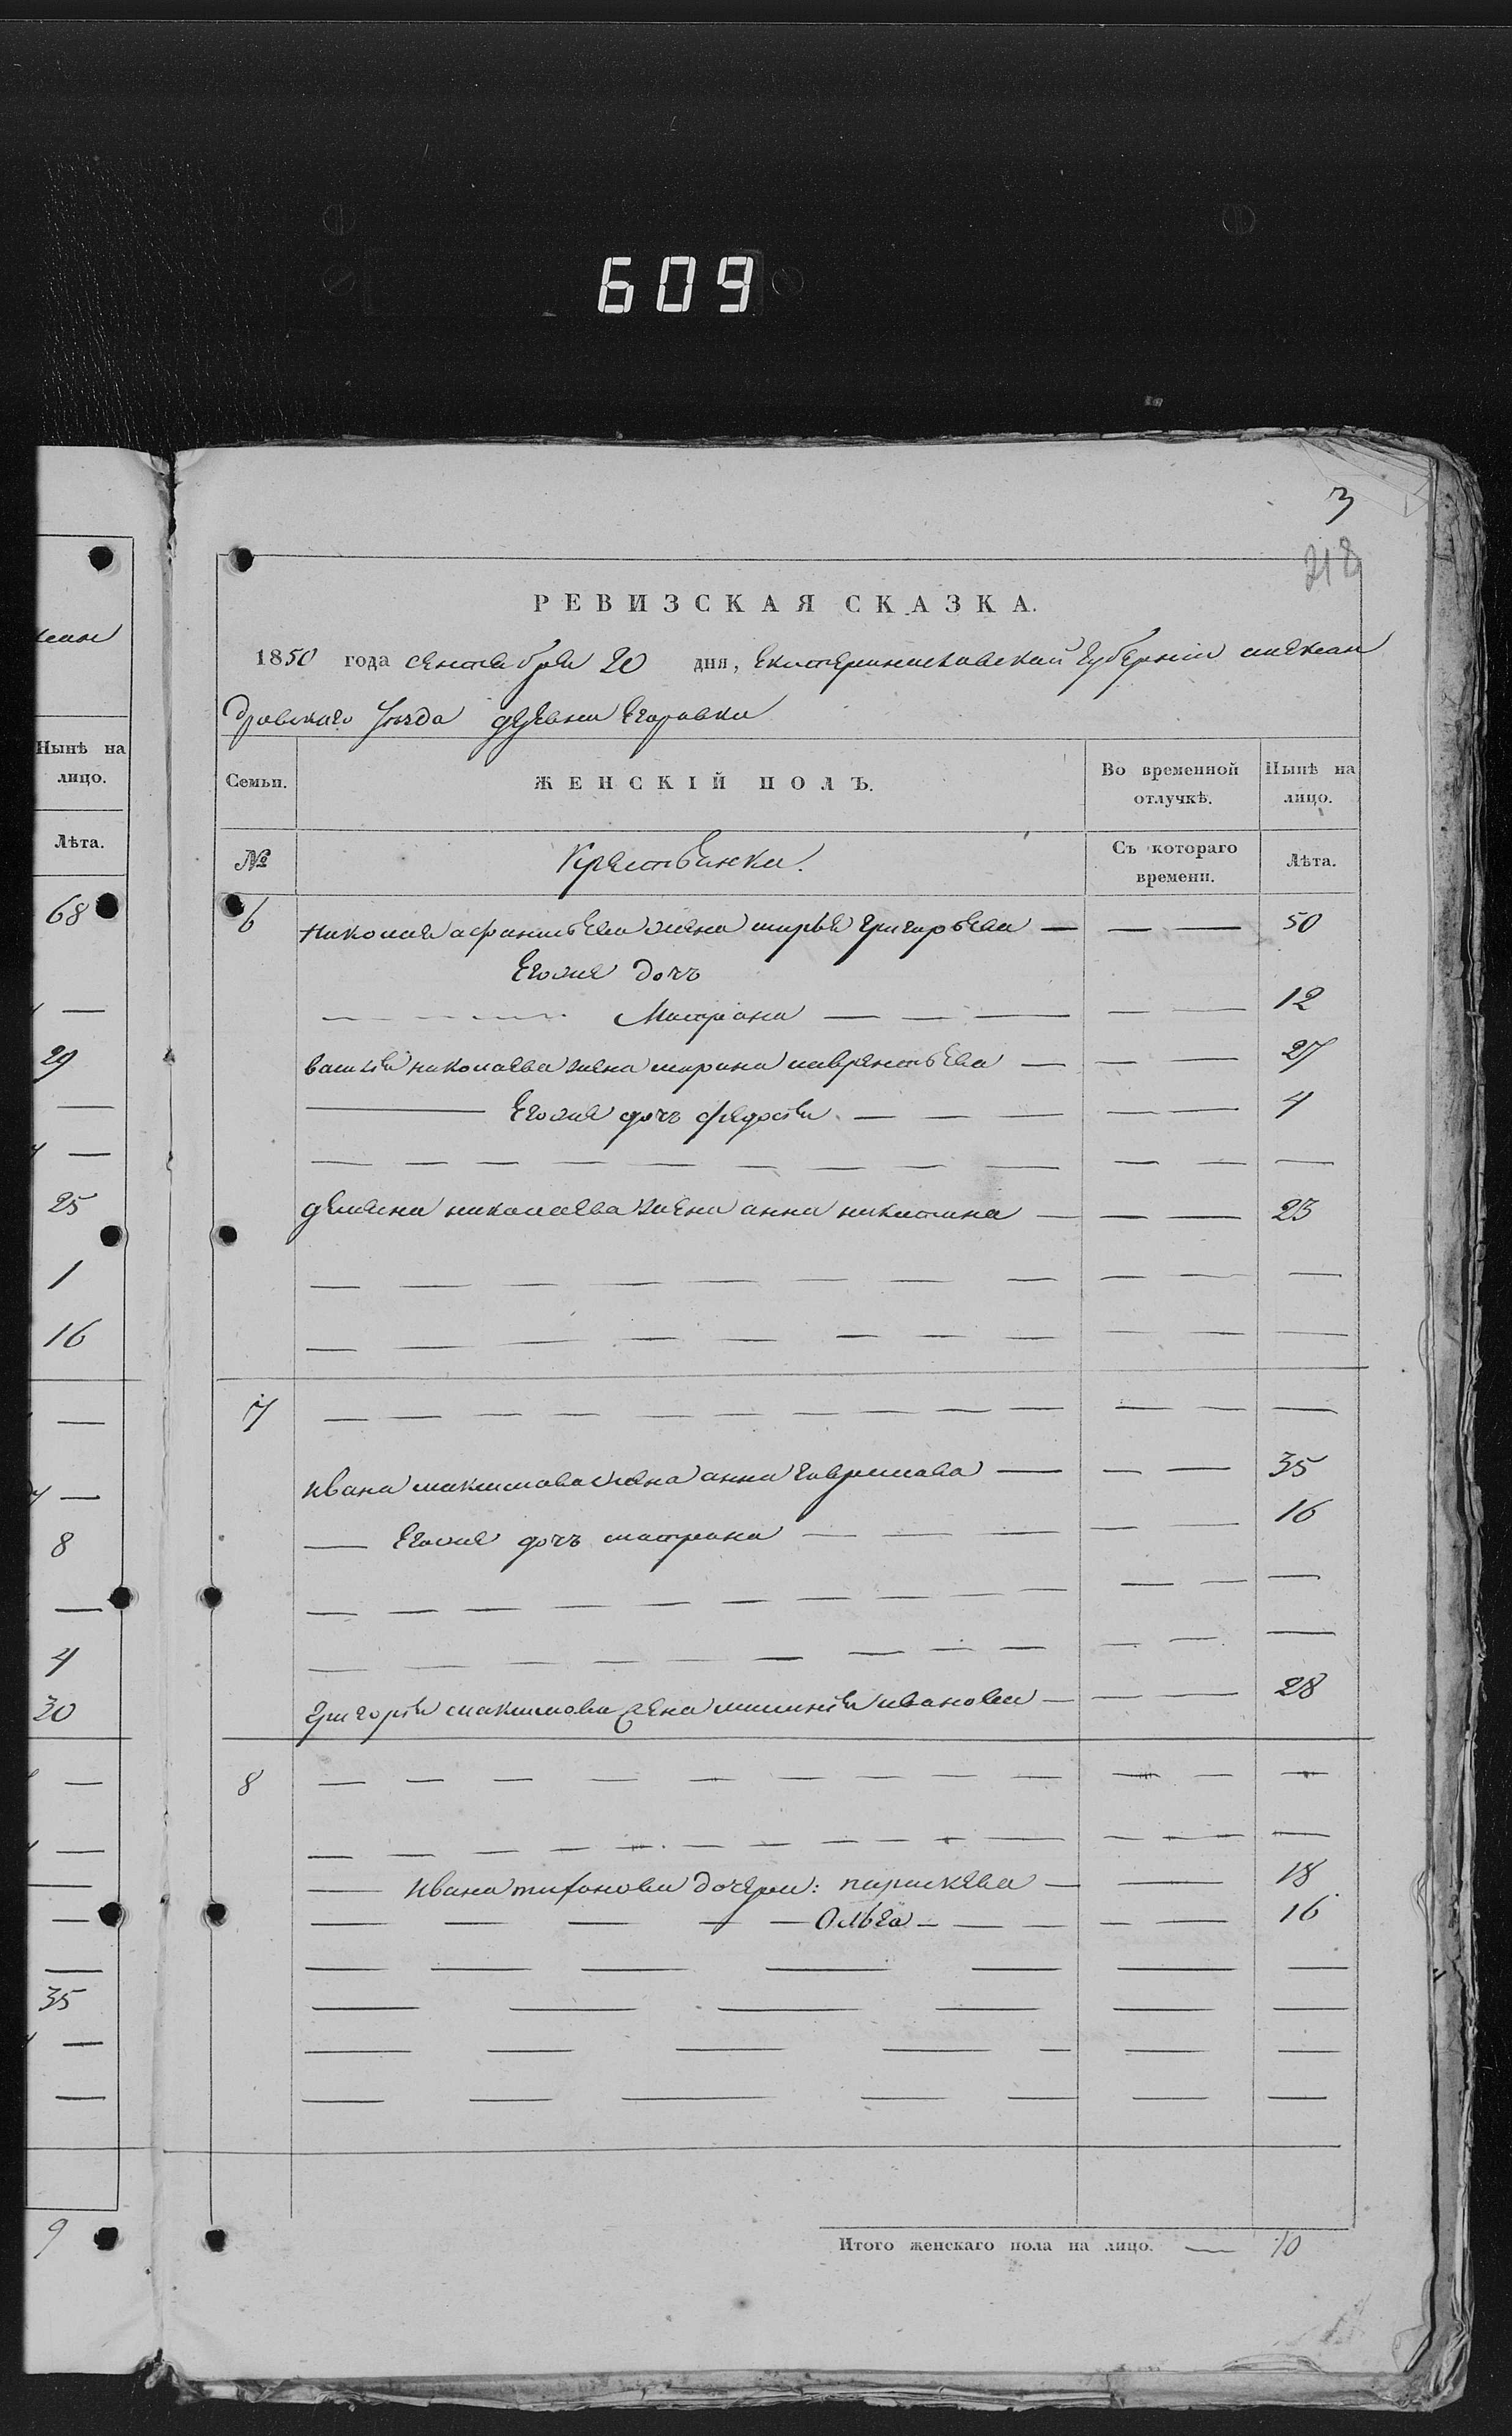 609
3
218
РЕВИЗСКАЯ СКАЗКА.
1850 года сентября 20 дня, Екатеринославской губернии алексан
дровского уезда деревни Егоровки
Нынѣ на лицо.
Лѣта.
68
29
25
1
16
8
4
30
35
9
Семьи. ЖЕНСКІЙ ПОЛЪ. Во временной отлучкѣ. Нынѣ на лицо.
№ Крестьянки. Съ котораго времени. Лѣта.
6 Николая афанасьева жена марья григорьева — — — 50
Егожа дочь
— — — — Матрiона — — — — — 12
василiя николаева жена марина лаврентьева — — — 27
— Егожа дочь федосiя — — — — — 4
— — — — — — — — — — — — —
демьяна николаева жена анна никитина — — — 23
— — — — — — — — — — — —
— — — — — — — — — — — —
7 — — — — — — — — — — — — —
ивана максимова жена анна гаврилова — — — 35
— Егожа дочь матрена — — — — — 16
— — — — — — — — — — — — —
— — — — — — — — — — — — —
григорiя максимова жена меланiя иванова — — — 28
8 — — — — — — — — — — — —
— — — — — — — — — — — — —
— ивана тихонова дочери: параскева — — 18
— — — — — Ольга — — — — — 16
— — — — — — —
— — — — — —
— — — — — — —
— — — — — — —
Итого женскаго пола на лицо. — 10